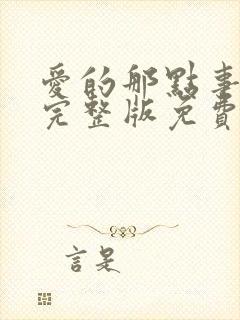 愛的那點事
完整版免費
言是